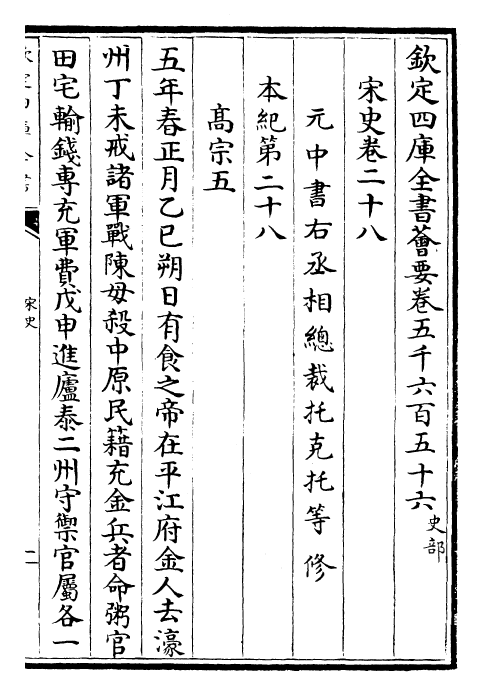 欽定四庫全書薈要卷五千六百五十六 史部
宋史卷二十八
元中書右丞相總裁托克托等修
本紀第二十八
髙宗五
五年春正月乙巳朔日有食之帝在平江府金人去濠
州丁未戒諸軍戰陳毋殺中原民籍充金兵者命粥官
田宅輸錢専充軍費戊申進廬泰二州守禦官屬各一
宋史